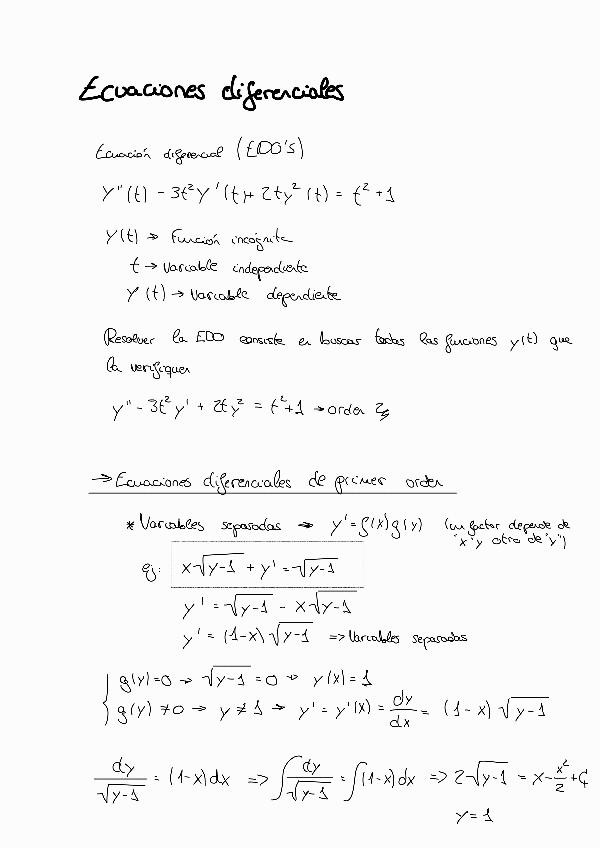 Ecuaciones diferenciales
Ecuación diferencial (EDO's)
y''(t) - 3t²y'(t) + 2ty²(t) = t² + 1
y(t) → Función incógnita
t → Variable independiente
y(t) → Variable dependiente
Resolver la EDO consiste en buscar todas las funciones y(t) que
la verifiquen
y'' - 3t²y' + 2ty² = t² + 1 → orden 2
→ Ecuaciones diferenciales de primer orden
* Variables separadas → y' = f(x)g(y) (un factor depende de
"x" y otro de "y")
ej: x√(y-1) + y' = √(y-1)
y' = √(y-1) - x√(y-1)
y' = (1-x)√(y-1) => Variables separadas
g(y) = 0 → √(y-1) = 0 → y(x) = 1
g(y) ≠ 0 → y ≠ 1 → y' = y'(x) = dy/dx = (1-x)√(y-1)
dy/√(y-1) = (1-x)dx => ∫ dy/√(y-1) = ∫(1-x)dx => 2√(y-1) = x - x²/2 + C
y = 1